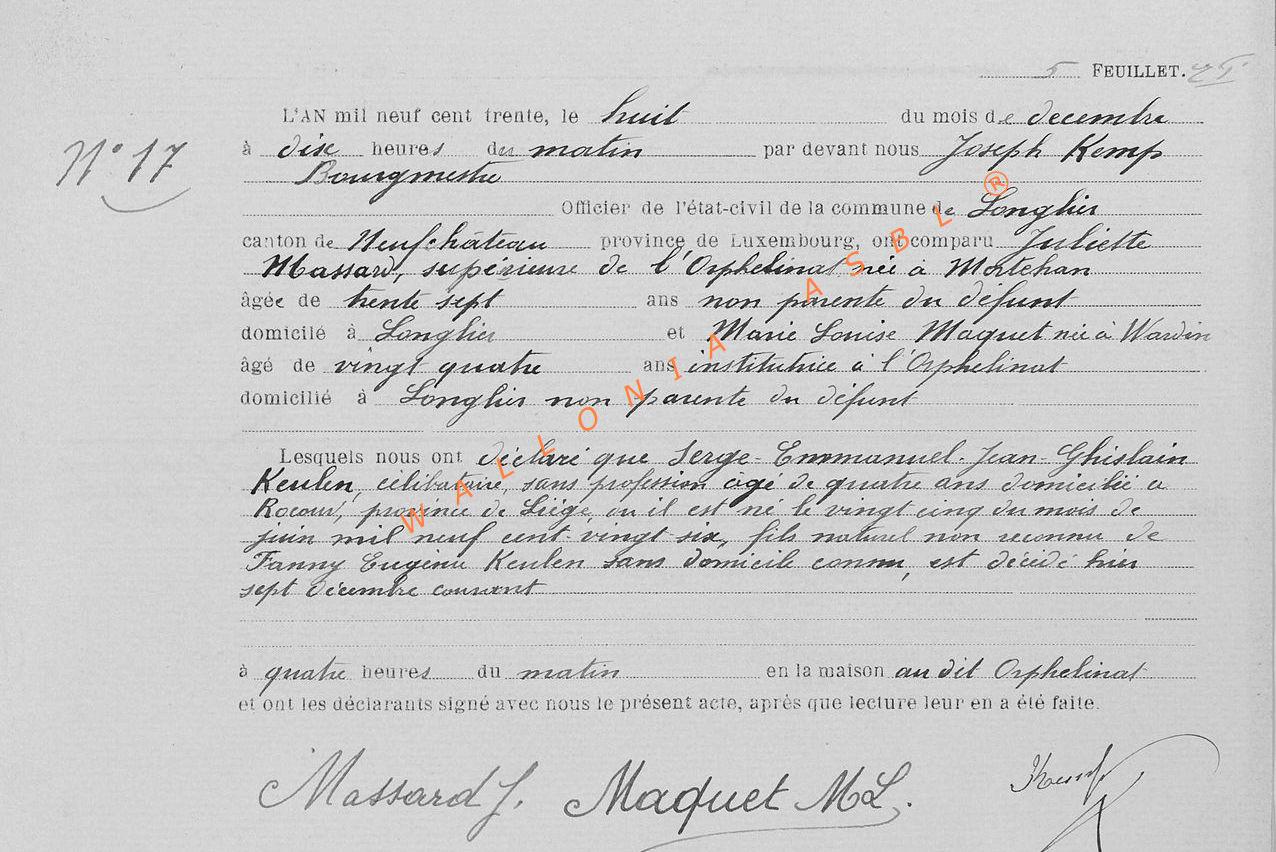 5 FEUILLET.
N° 17
L'AN mil neuf cent trente, le huit du mois de decembre
à dix heures du matin par devant nous Joseph Kemp
Bourgmestre
Officier de l'état-civil de la commune de Longlier
canton de Neufchâteau province de Luxembourg, ont comparu Juliette
Massard, supérieure de l'Orphelinat née à Mortehan
âgée de trente sept ans non parente du défunt
domicilé à Longlier et Marie Louise Maquet née à Wardin
âgé de vingt quatre ans institutrice à l'Orphelinat
domicilié à Longlier non parente du défunt
Lesquels nous ont déclaré que Serge-Emmanuel-Jean-Ghislain
Keulen, célibataire, sans profession âgé de quatre ans domicilié à
Rocour, province de Liége, où il est né le vingt cinq du mois de
juin mil neuf cent-vingt six, fils naturel non reconnu de
Fanny Eugénie Keulen sans domicile connu, est décédé hier
sept décembre courant
à quatre heures du matin en la maison au dit Orphelinat
et ont les déclarants signé avec nous le présent acte, après que lecture leur en a été faite.
Massard J. Maquet ML. Kemp
WALLONIA ASBL ®